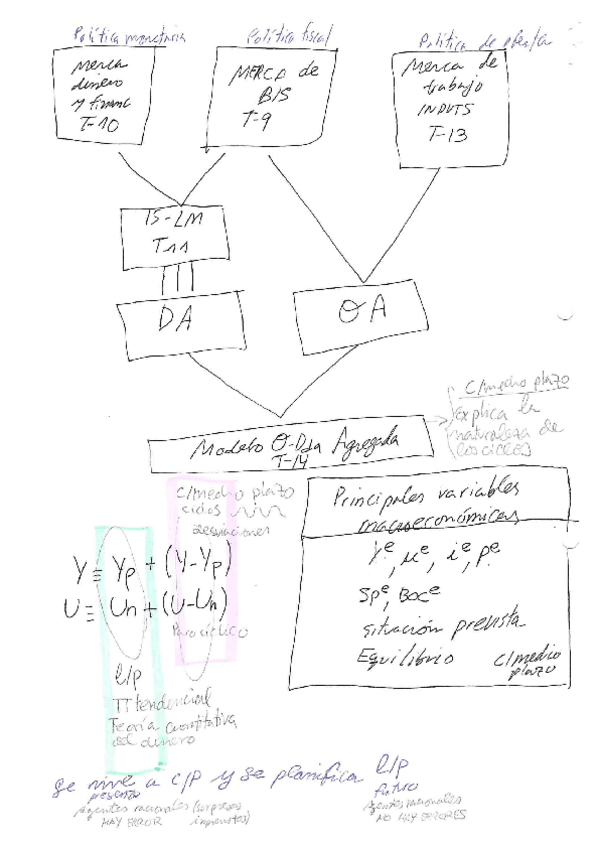 Política monetaria
Política fiscal
Política de oferta
Merca
dinero
y financ
T-10
MERCA de
B/S
T-9
Merca de
trabajo
INPUTS
T-13
IS-LM
T11
DA
OA
Modelo O-Dda Agregada
T-14
C/medio plazo
explica la
naturaleza de
los ciclos
C/medio plazo
ciclos
desviaciones
Y ≡ Yp + (Y-Yp)
U ≡ Un + (U-Un)
Paro cíclico
l/p
π tendencial
Teoría cuantitativa
del dinero
Principales variables
macroeconómicas
Yᵉ, uᵉ, iᵉ, pᵉ
Spᵉ, Bocᵉ
situación prevista
Equilibrio c/medio
plazo
Se vive a c/p y se planifica l/p
presente
Agentes racionales (sorpresas
HAY ERROR imprevistos)
futuro
Agentes racionales
NO HAY ERRORES